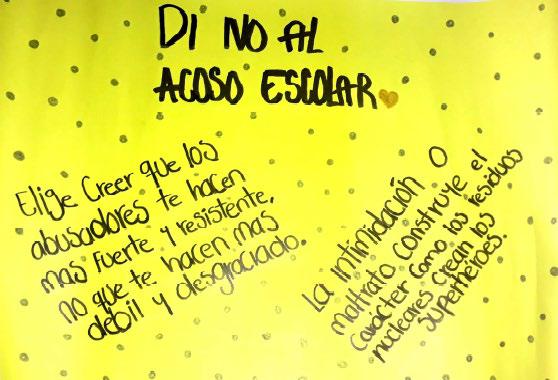 DI NO AL
ACOSO ESCOLAR
Elige Creer que los
abusadores te hacen
mas fuerte y resistente,
no que te hacen mas
debil y desgraciado.
La intimidación o
maltrato construye el
carácter como los residuos
nucleares crean los
superhéroes.